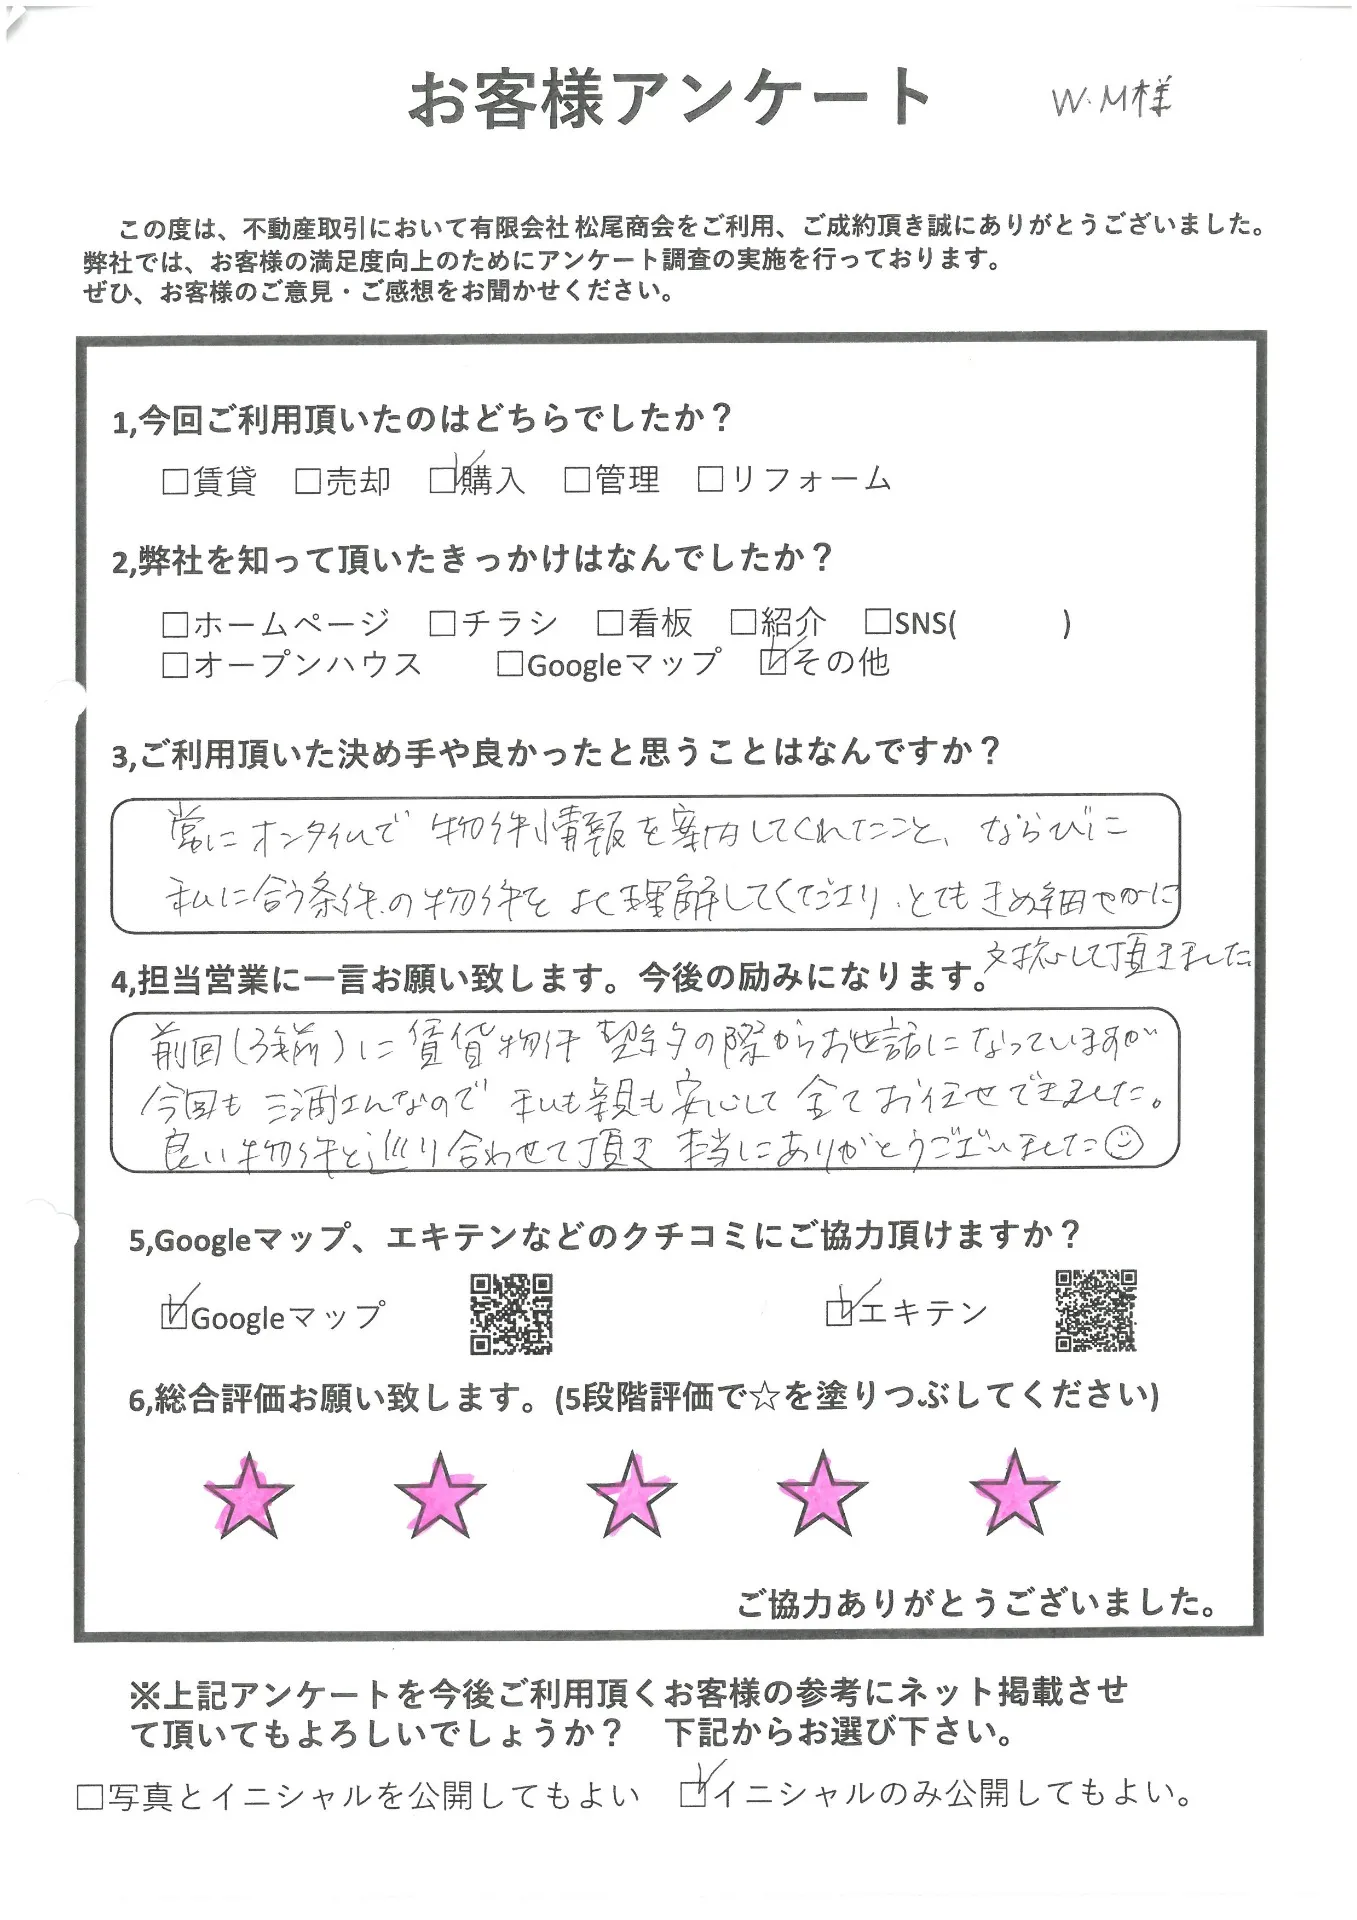 お客様アンケート W.M様
この度は、不動産取引において有限会社 松尾商会をご利用、ご成約頂き誠にありがとうございました。
弊社では、お客様の満足度向上のためにアンケート調査の実施を行っております。
ぜひ、お客様のご意見・ご感想をお聞かせください。
1,今回ご利用頂いたのはどちらでしたか？
□賃貸 □売却 ☑購入 □管理 □リフォーム
2,弊社を知って頂いたきっかけはなんでしたか？
□ホームページ □チラシ □看板 □紹介 □SNS( )
□オープンハウス □Googleマップ ☑その他
3,ご利用頂いた決め手や良かったと思うことはなんですか？
常にオンタイムで物件情報を案内してくれたこと、ならびに
私に合う条件の物件をよく理解してくださり、とてもきめ細やかに
対応して頂きました
4,担当営業に一言お願い致します。今後の励みになります。
前回(3年前)に賃貸物件契約の際からお世話になっていますが
今回も三浦さんなので私も親も安心して全てお任せできました。
良い物件と巡り合わせて頂き本当にありがとうございました☺
5,Googleマップ、エキテンなどのクチコミにご協力頂けますか？
☑Googleマップ ☑エキテン
6,総合評価お願い致します。(5段階評価で☆を塗りつぶしてください)
ご協力ありがとうございました。
※上記アンケートを今後ご利用頂くお客様の参考にネット掲載させ
て頂いてもよろしいでしょうか？ 下記からお選び下さい。
□写真とイニシャルを公開してもよい ☑イニシャルのみ公開してもよい。